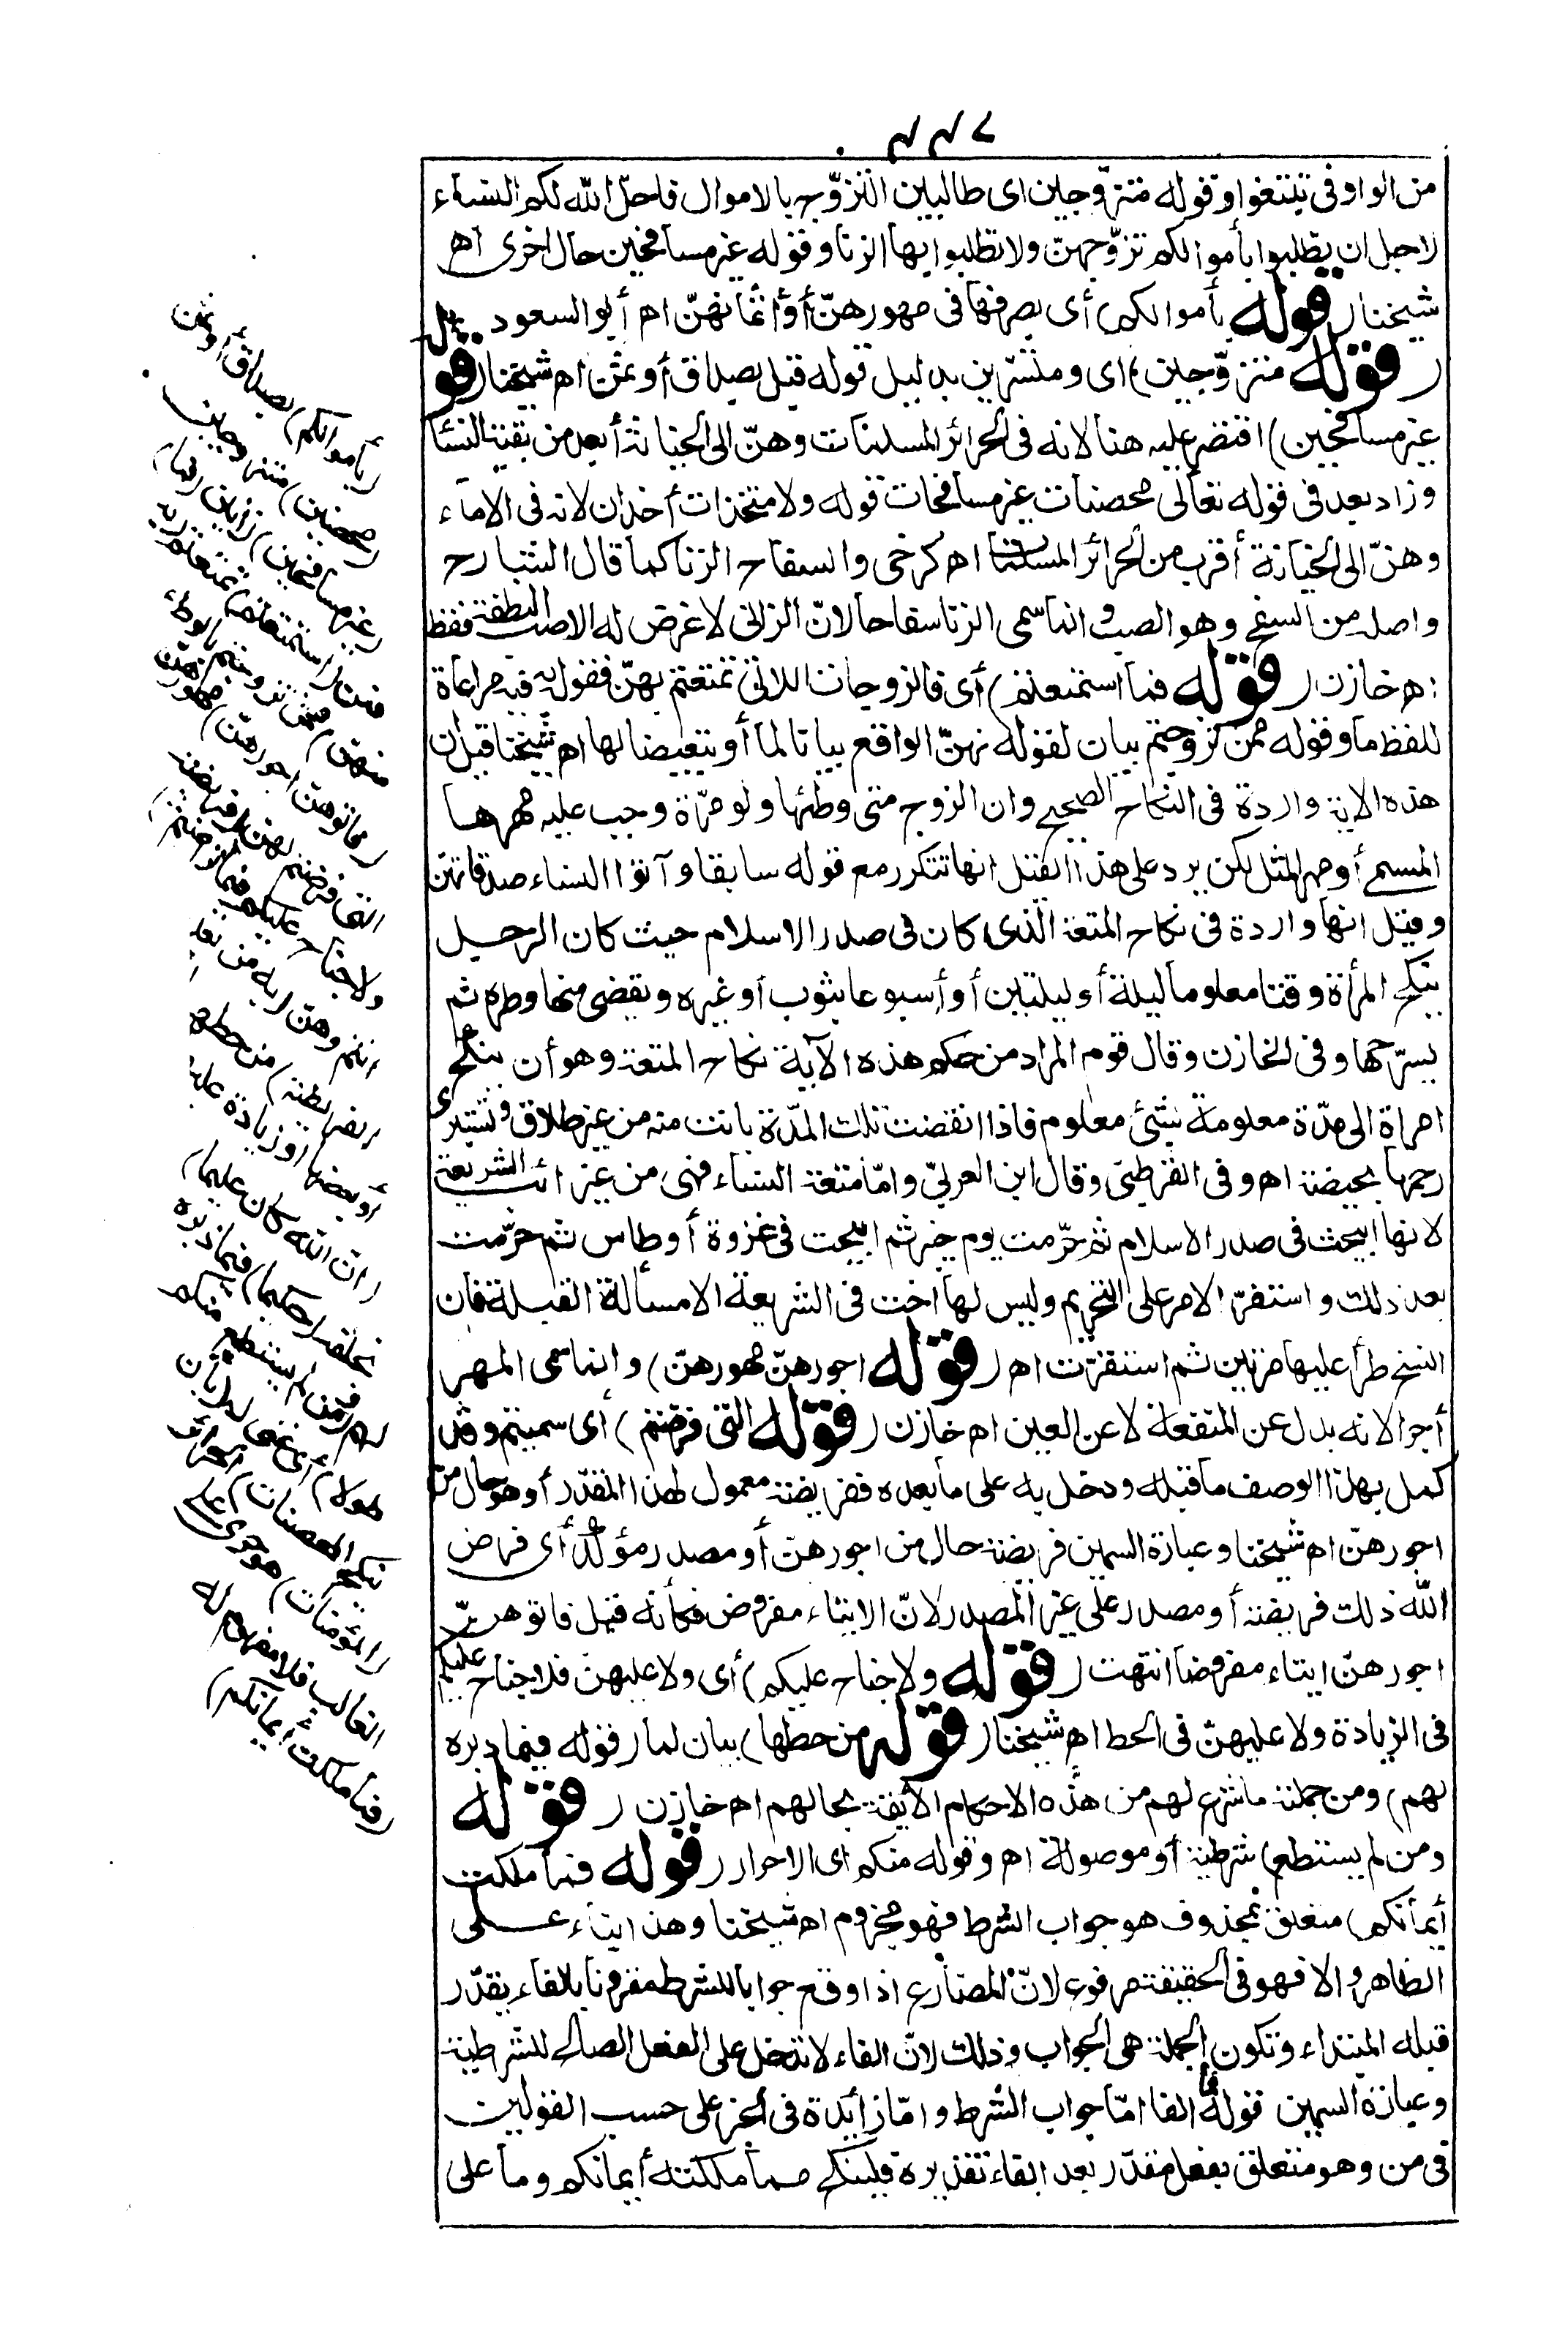 ٧٣٣
من الواو فى تبتغوا وقوله متزوّجين اى طالبين التزوّج بالاموال فاحلّ الله لكم النساء
لاجل ان تطلبوا بأموالكم تزوّجهنّ ولا تطلبوا بها الزنا وقوله غير مسافحين حال اخرى اهـ
شيخنا (قوله بأموالكم) أى بصرفها فى مهورهنّ أو أثمانهنّ اهـ أبو السعود
(قوله متزوّجين) اى ومتسرّين بدليل قوله قبل بصداق أو ثمن اهـ شيخنا (قوله
غير مسافحين) اقتصر عليه هنا لانه فى الحرائر المسلمات وهنّ الى الخيانة أبعد من بقية النساء
وزاد بعد فى قوله تعالى محصنات غير مسافحات قوله ولا متخذات أخدان لانه فى الاماء
وهنّ الى الخيانة أقرب من الحرائر المسلمات اهـ كرخى والسفاح الزنا كما قال الشارح
واصله من السفح وهو الصب وانما سمى الزنا سفاحا لانّ الزانى لا غرض له الا صب النطفة فقط
اهـ خازن (قوله فما استمتعتم) أى فالزوجات اللاتى تمتعتم بهنّ فقوله به فيه مراعاة
للفظ ما وقوله ممن تزوجتم بيان لقوله نهنّ الواقع بيانا لما أو تبعيضا لها اهـ شيخنا قيل ان
هذه الاية واردة فى النكاح الصحيح وان الزوج متى وطئها ولو مرّة وجب عليه مهرها
المسمى أو مهر المثل لكن يرد على هذا القيل انها تتكرر مع قوله سابقا وآتوا النساء صدقاتهن
وقيل انها واردة فى نكاح المتعة الذى كان فى صدر الاسلام حيث كان الرجل
ينكح المرأة وقتا معلوما ليلة أو ليلتين أو أسبوعا بثوب أو غيره ويقضى منها وطره ثم
يسرّحها وفى الخازن وقال قوم المراد من حكم هذه الآية نكاح المتعة وهو أن ينكح
امراة الى مدّة معلومة بشئ معلوم فاذا انقضت تلك المدّة بانت منه من غير طلاق وتستبرى
رحمها بحيضة اهـ وفى القرطبى وقال ابن العربىّ وامّا متعة النساء فهى من غرائب الشريعة
لانها ابيحت فى صدر الاسلام ثم حرّمت يوم خيبر ثم ابيحت فى غزوة أوطاس ثم حرّمت
بعد ذلك واستقرّ الامر على التحريم وليس لها اخت فى الشريعة الا مسألة القبلة فان
النسخ طرأ عليها مرتين ثم استقرت اهـ (قوله اجورهنّ مهورهنّ) وانما سمى المهر
أجرا لانه بدل عن المنفعة لا عن العين اهـ خازن (قوله التى فرضتم) أى سميتم وقد
كمل بهذا الوصف ما قبله ودخل به على ما بعده ففريضة معمول لهذا المقدّر أو هو حال من
اجورهنّ اهـ شيخنا وعبارة السمين فريضة حال من اجورهنّ أو مصدر مؤكد أى فرض
الله ذلك فريضة أو مصدر على غير المصدر لانّ الايتاء مفروض فكأنه قيل فاتوهنّ
اجورهنّ ايتاء مفروضا انتهت (قوله ولا جناح عليكم) أى ولا عليهن فلا جناح عليكم
فى الزيادة ولا عليهنّ فى الحط اهـ شيخنا (قوله من حطها) بيان لما (قوله فيما دبره
لهم) ومن جملته ما شرع لهم من هذه الاحكام الايقة بحالهم اهـ خازن (قوله
ومن لم يستطع) شرطية أو موصولة اهـ وقوله منكم اى الاحرار (قوله فما ملكت
أيمانكم) متعلق بمحذوف هو جواب الشرط فهو مجزوم اهـ شيخنا وهذا ابتاء على
الظاهر والا فهو فى الحقيقة مرفوع لانّ المضارع اذا وقع جوابا للشرط مقرونا بالفاء يقدّر
قبله المبتداء وتكون الجملة هى الجواب وذلك لانّ الفاء لا تدخل على الفعل الصالح للشرطية
وعبارة السمين قوله فما الفا امّا جواب الشرط وامّا زايدة فى الخبر على حسب القولين
فى من وهو متعلق بفعل مقدّر بعد الفاء تقديره فلينكح مما ملكته أيمانكم وما على
(بأموالكم) بصداق أو ثمن
(محصنين) متزوجين
(غير مسافحين) زانين (فما)
فمن (استمتعتم) تمتعتم (به
منهن) ممن تزوجتم بالوطء
(فاتوهن اجورهن) مهورهن
التى فرضتم لهن (فريضة
ولا جناح عليكم فيما تراضيتم)
انتم وهن (به من بعد
الفريضة) من حطها
أو بعضها او زيادة عليها
(ان الله كان عليما)
بخلقه (حكيما) فيما دبره
لهم (ومن لم يستطع منكم
طولا) أى غنى لـ(أن
ينكح المحصنات) الحرائر
(المؤمنات) هو جرى على
الغالب فلا مفهوم له
(فما ملكت أيمانكم)